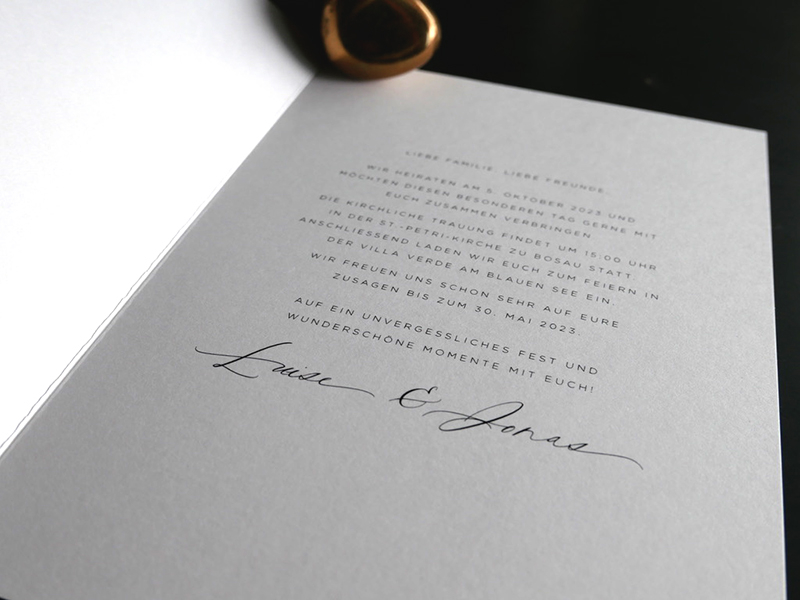 LIEBE FAMILIE, LIEBE FREUNDE,
WIR HEIRATEN AM 5. OKTOBER 2023 UND
MÖCHTEN DIESEN BESONDEREN TAG GERNE MIT
EUCH ZUSAMMEN VERBRINGEN.
DIE KIRCHLICHE TRAUUNG FINDET UM 15:00 UHR
IN DER ST.-PETRI-KIRCHE ZU BOSAU STATT.
ANSCHLIESSEND LADEN WIR EUCH ZUM FEIERN IN
DER VILLA VERDE AM BLAUEN SEE EIN.
WIR FREUEN UNS SCHON SEHR AUF EURE
ZUSAGEN BIS ZUM 30. MAI 2023.
AUF EIN UNVERGESSLICHES FEST UND
WUNDERSCHÖNE MOMENTE MIT EUCH!
Luise & Jonas